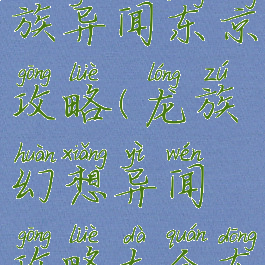 族异闻东京
gōng lüè lóng zú
攻略(龙族
huàn xiǎng yì wén
幻想异闻
gōng lüè dà quán dōng
攻略大全东